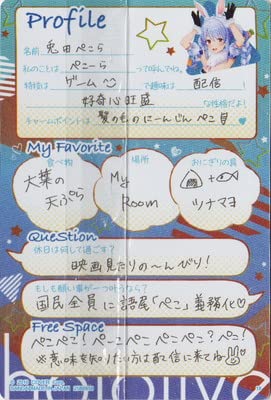 Profile
名前 兎田ぺこら
私のことは ぺこーら って呼んでね。
特技は ゲーム で趣味は 配信 !
好奇心旺盛 な性格だよ!
チャームポイントは 髪のものにーんじん ぺこ
My Favorite
食べ物 場所 おにぎりの具
大葉の天ぷら My Room ツナマヨ
QueStion
休日は何して過ごす?
映画見たりの〜んびり!
もしも願い事が一つ叶うなら?
国民全員に語尾「ぺこ」義務化♡
Free Space
ぺこぺこ!ぺこーぺこぺこ!ぺこ!
※意味を知りたい方は配信に来てね
hololive